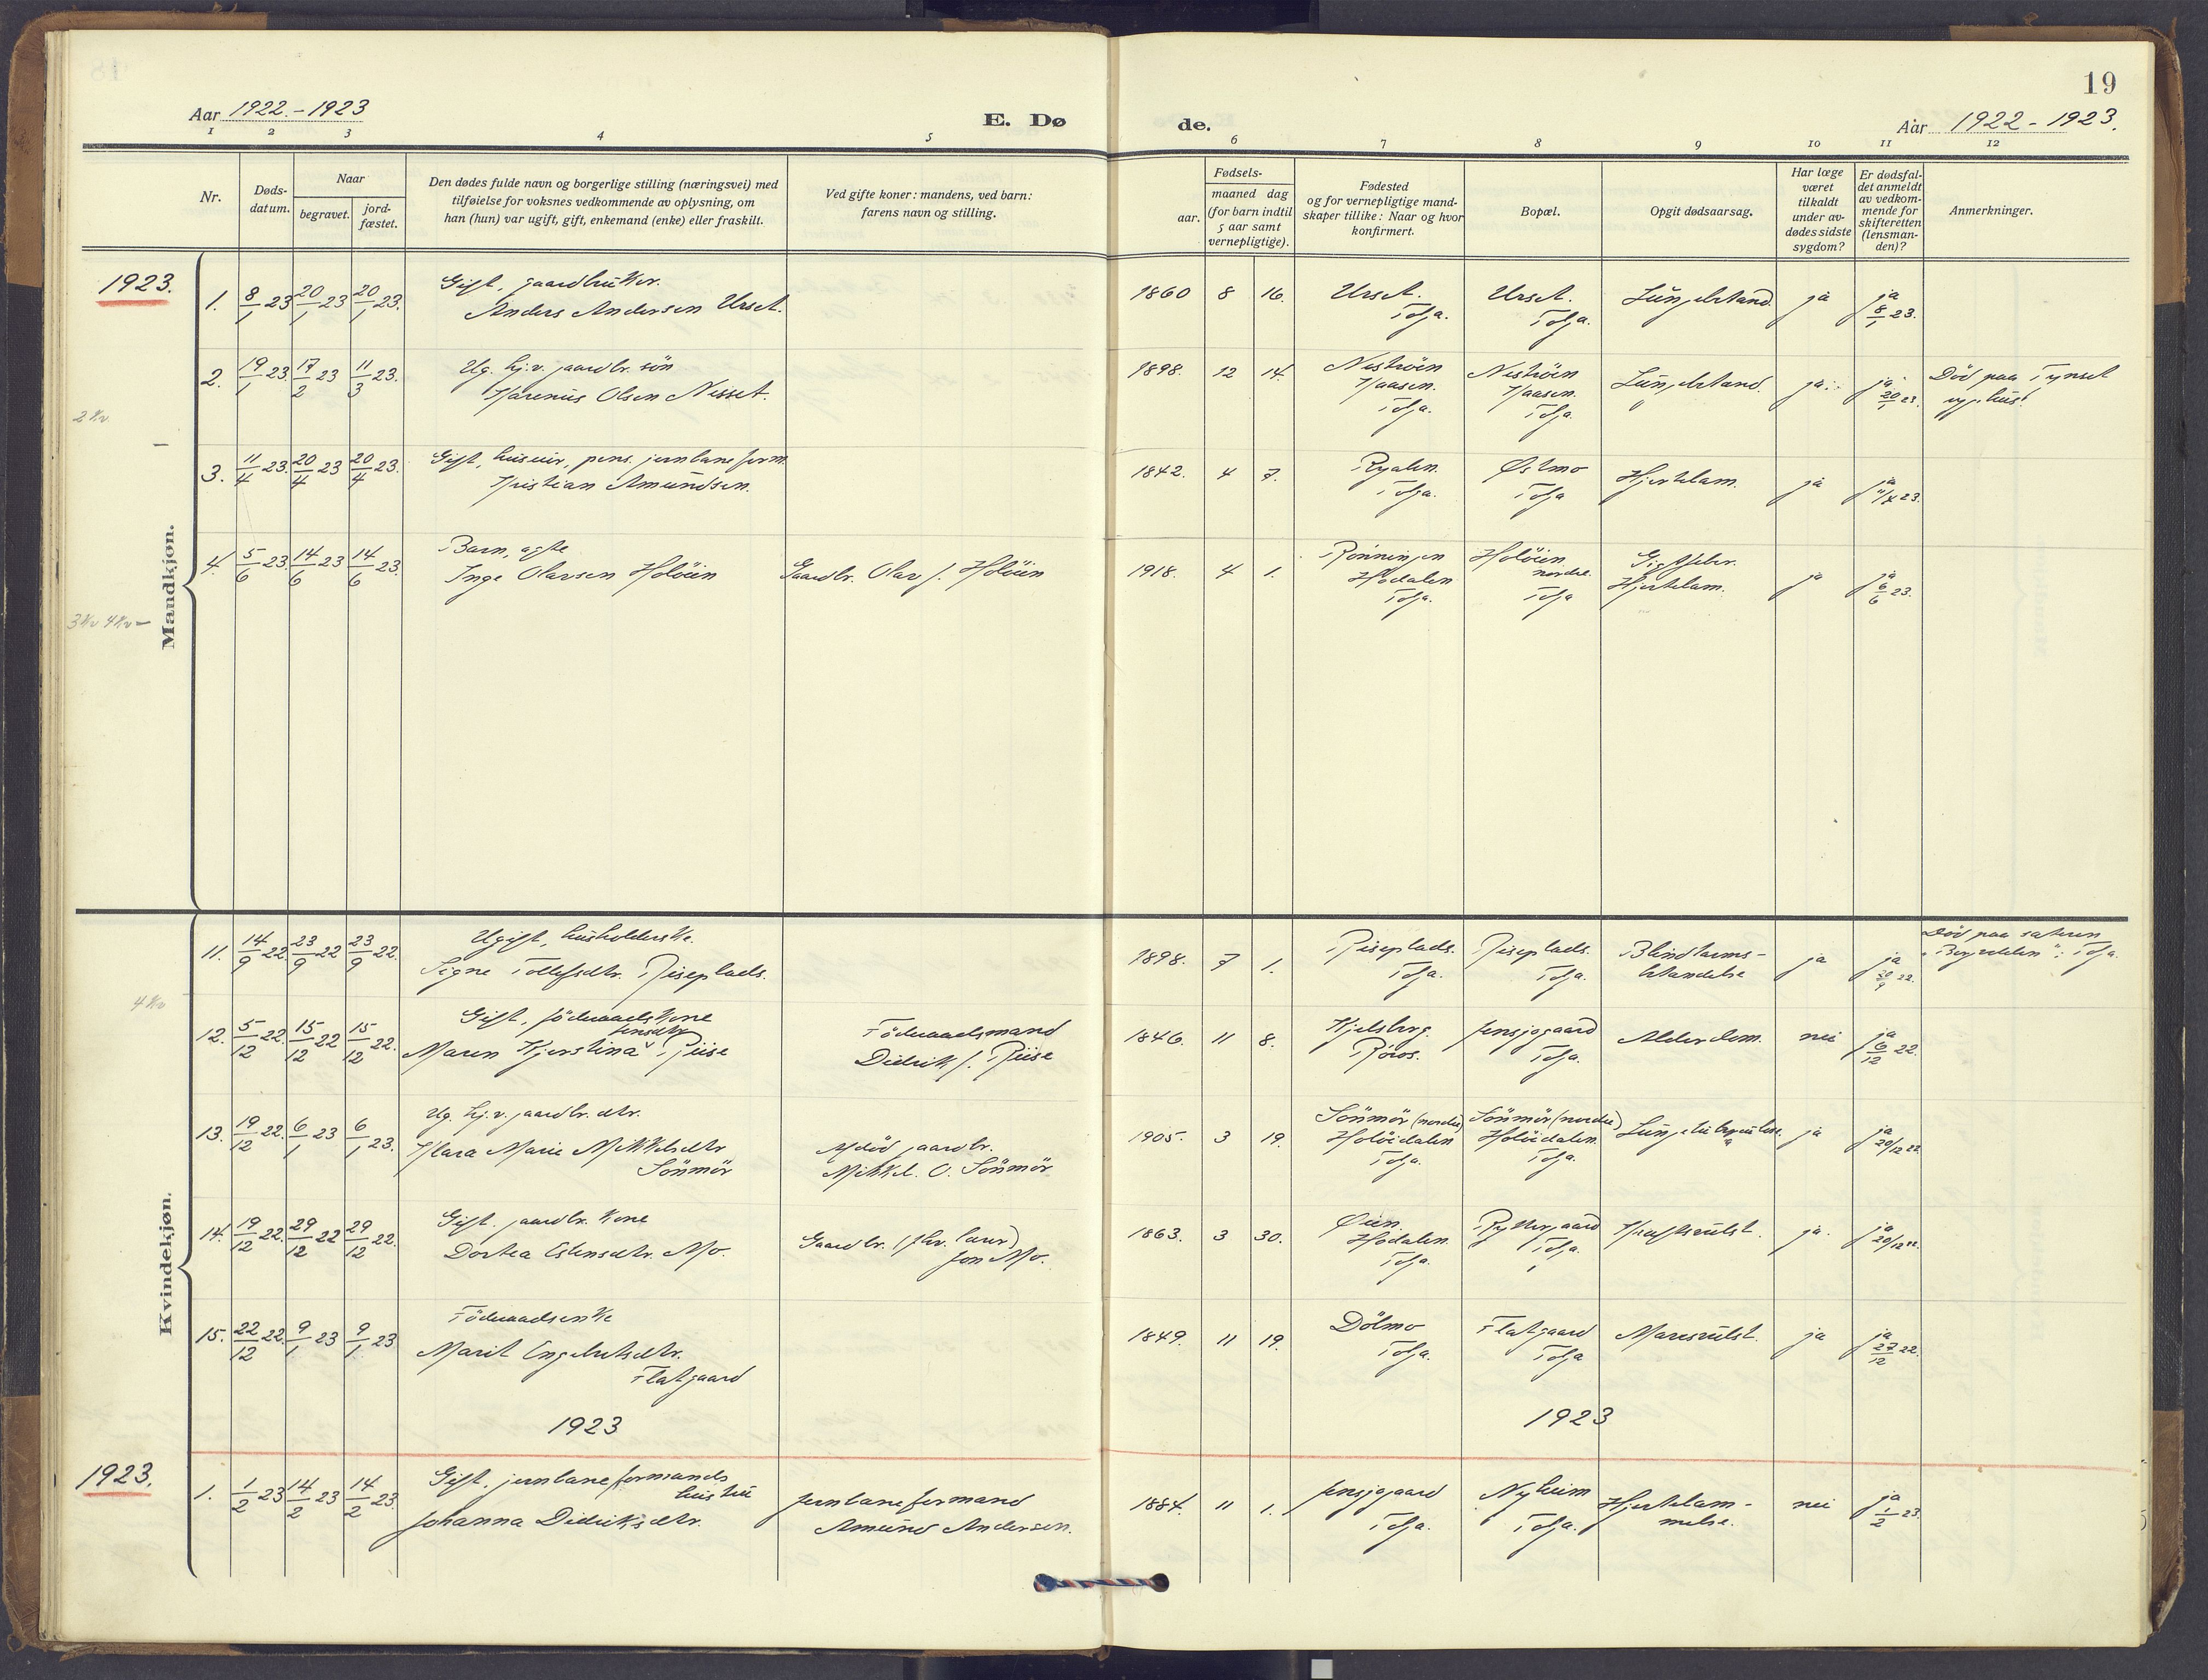 19
Aar 1922.-1923
E. Dø
de.
Aar 1922-1923.
1 2 3 4 5 6 7 8 9 10 11 12
Nr.
Døds-
datum.
Naar
begravet.
jord-
fæstet.
Den dødes fulde navn og borgerlige stilling (næringsvei) med
tilføielse for voksnes vedkommende av oplysning, om
han (hun) var ugift, gift, enkemand (enke) eller fraskilt.
Ved gifte koner: mandens, ved barn:
farens navn og stilling.
Fødsels-
aar.
maaned dag
(for barn indtil
5 aar samt
vernepligtige).
Fødested
og for vernepligtige mand-
skaper tillike: Naar og hvor
konfirmert.
Bopæl.
Opgit dødsaarsag.
Har læge
været
tilkaldt
under av-
dødes sidste
sygdom?
Er dødsfal-
det anmeldt
av vedkom-
mende for
skifteretten
(lensman-
den)?
Anmerkninger.
Mandkjøn.
1923.
1. 8/1 23 20/1 23 20/1 23.
Gift, gaardbruker.
Anders Andersen Urset.
1860 8 16.
Urset.
Tolga.
Urset.
Tolga.
ja
ja
8/1 23.
2. 19/1 23. 17/2 23 11/3 23.
Ug. hj.v. gaardbr. søn
Harenius Olsen Nesset.
1898. 12 14.
Neströen
Haasen.
Tolga.
Neströen
Haasen.
Tolga.
ja.
ja
20/1 23.
Död paa Tynset
sygehus.
2 Kv
3. 11/4 23. 20/4 23 20/4 23.
Gift, huseier, pens. jernbaneform.
Kristian Amundsen.
1842. 4 7.
Ryalen.
Tolga.
Østmo
Tolga
Hjertelam.
ja
ja
11/4 23.
4. 5/6 23. 14/6 23 14/6 23.
Barn, egte
Inge Olavsen Holöien
Gaardbr. Olav J. Holöien
1918. 4 1.
Rönningen
Hodalen
Tolga.
Holöien
nordre.
Tolga
Gigtfeber.
Hjertelam.
ja
ja
6/6 23.
3 Kv 4 Kv -
Kvindekjøn.
11. 14/9 22. 23/9 22 23/9 22.
Ugift, husholderske.
Signe Tollefsdtr. Riseplads.
1898. 7 1.
Riseplads.
Tolga.
Riseplads.
Tolga.
Blindtarms-
betændelse
ja
ja
20/9 22.
Död paa sæteren
Tolga.
4 Kv
12. 5/12 22. 15/12 22 15/12 22.
Gift, föderaadskone
Jensdtr
Maren Kjerstina v Riise
Föderaadsmand
Didrik J. Riise
1846. 11 8.
Kjelsberg.
Röros.
Jensjogaard
Tolga.
Alderdom.
nei
ja
6/12 22.
13. 19/12 22. 6/1 23 6/1 23.
Ug. hj.v. gaardbr. dtr.
Klara Marie Mikkelsdtr
Sönmör
Afdöd gaardbr.
Mikkel O. Sönmör
1905. 3 19.
Sönmör (nordre)
Holöidalen
Tolga.
Sönmör (nordre)
Holöidalen
Tolga.
Lungetuberkulose.
ja
ja
20/12 22
14. 19/12 22. 29/12 22 29/12 22.
Gift. gaardbr. kone
Dortea Estensdtr. Mo.
Gaardbr.
Jon Mo.
1863. 3 30.
Øien.
Hodalen.
Tolga.
Ryttergaard
Tolga.
Kræftsvulst.
ja.
ja
20/12 22.
15. 22/12 22. 9/1 23 9/1 23.
Föderaadsenke
Marit Engebretsdtr.
Flatgaard
1849. 11 19.
Dölmo
Tolga.
Flatgaard
Tolga
Mavesvulst.
ja
ja
27/12 22.
1923
1923
1923.
1. 1/2 23 14/2 23 14/2 23.
Gift, jernbaneformands
hustru
Johanna Didriksdtr.
Jernbaneformand
Amund Andersen.
1884. 11 1.
Jensjogaard
Tolga.
Nyheim
Tolga.
Hjertelam-
melse.
nei
ja
1/2 23.